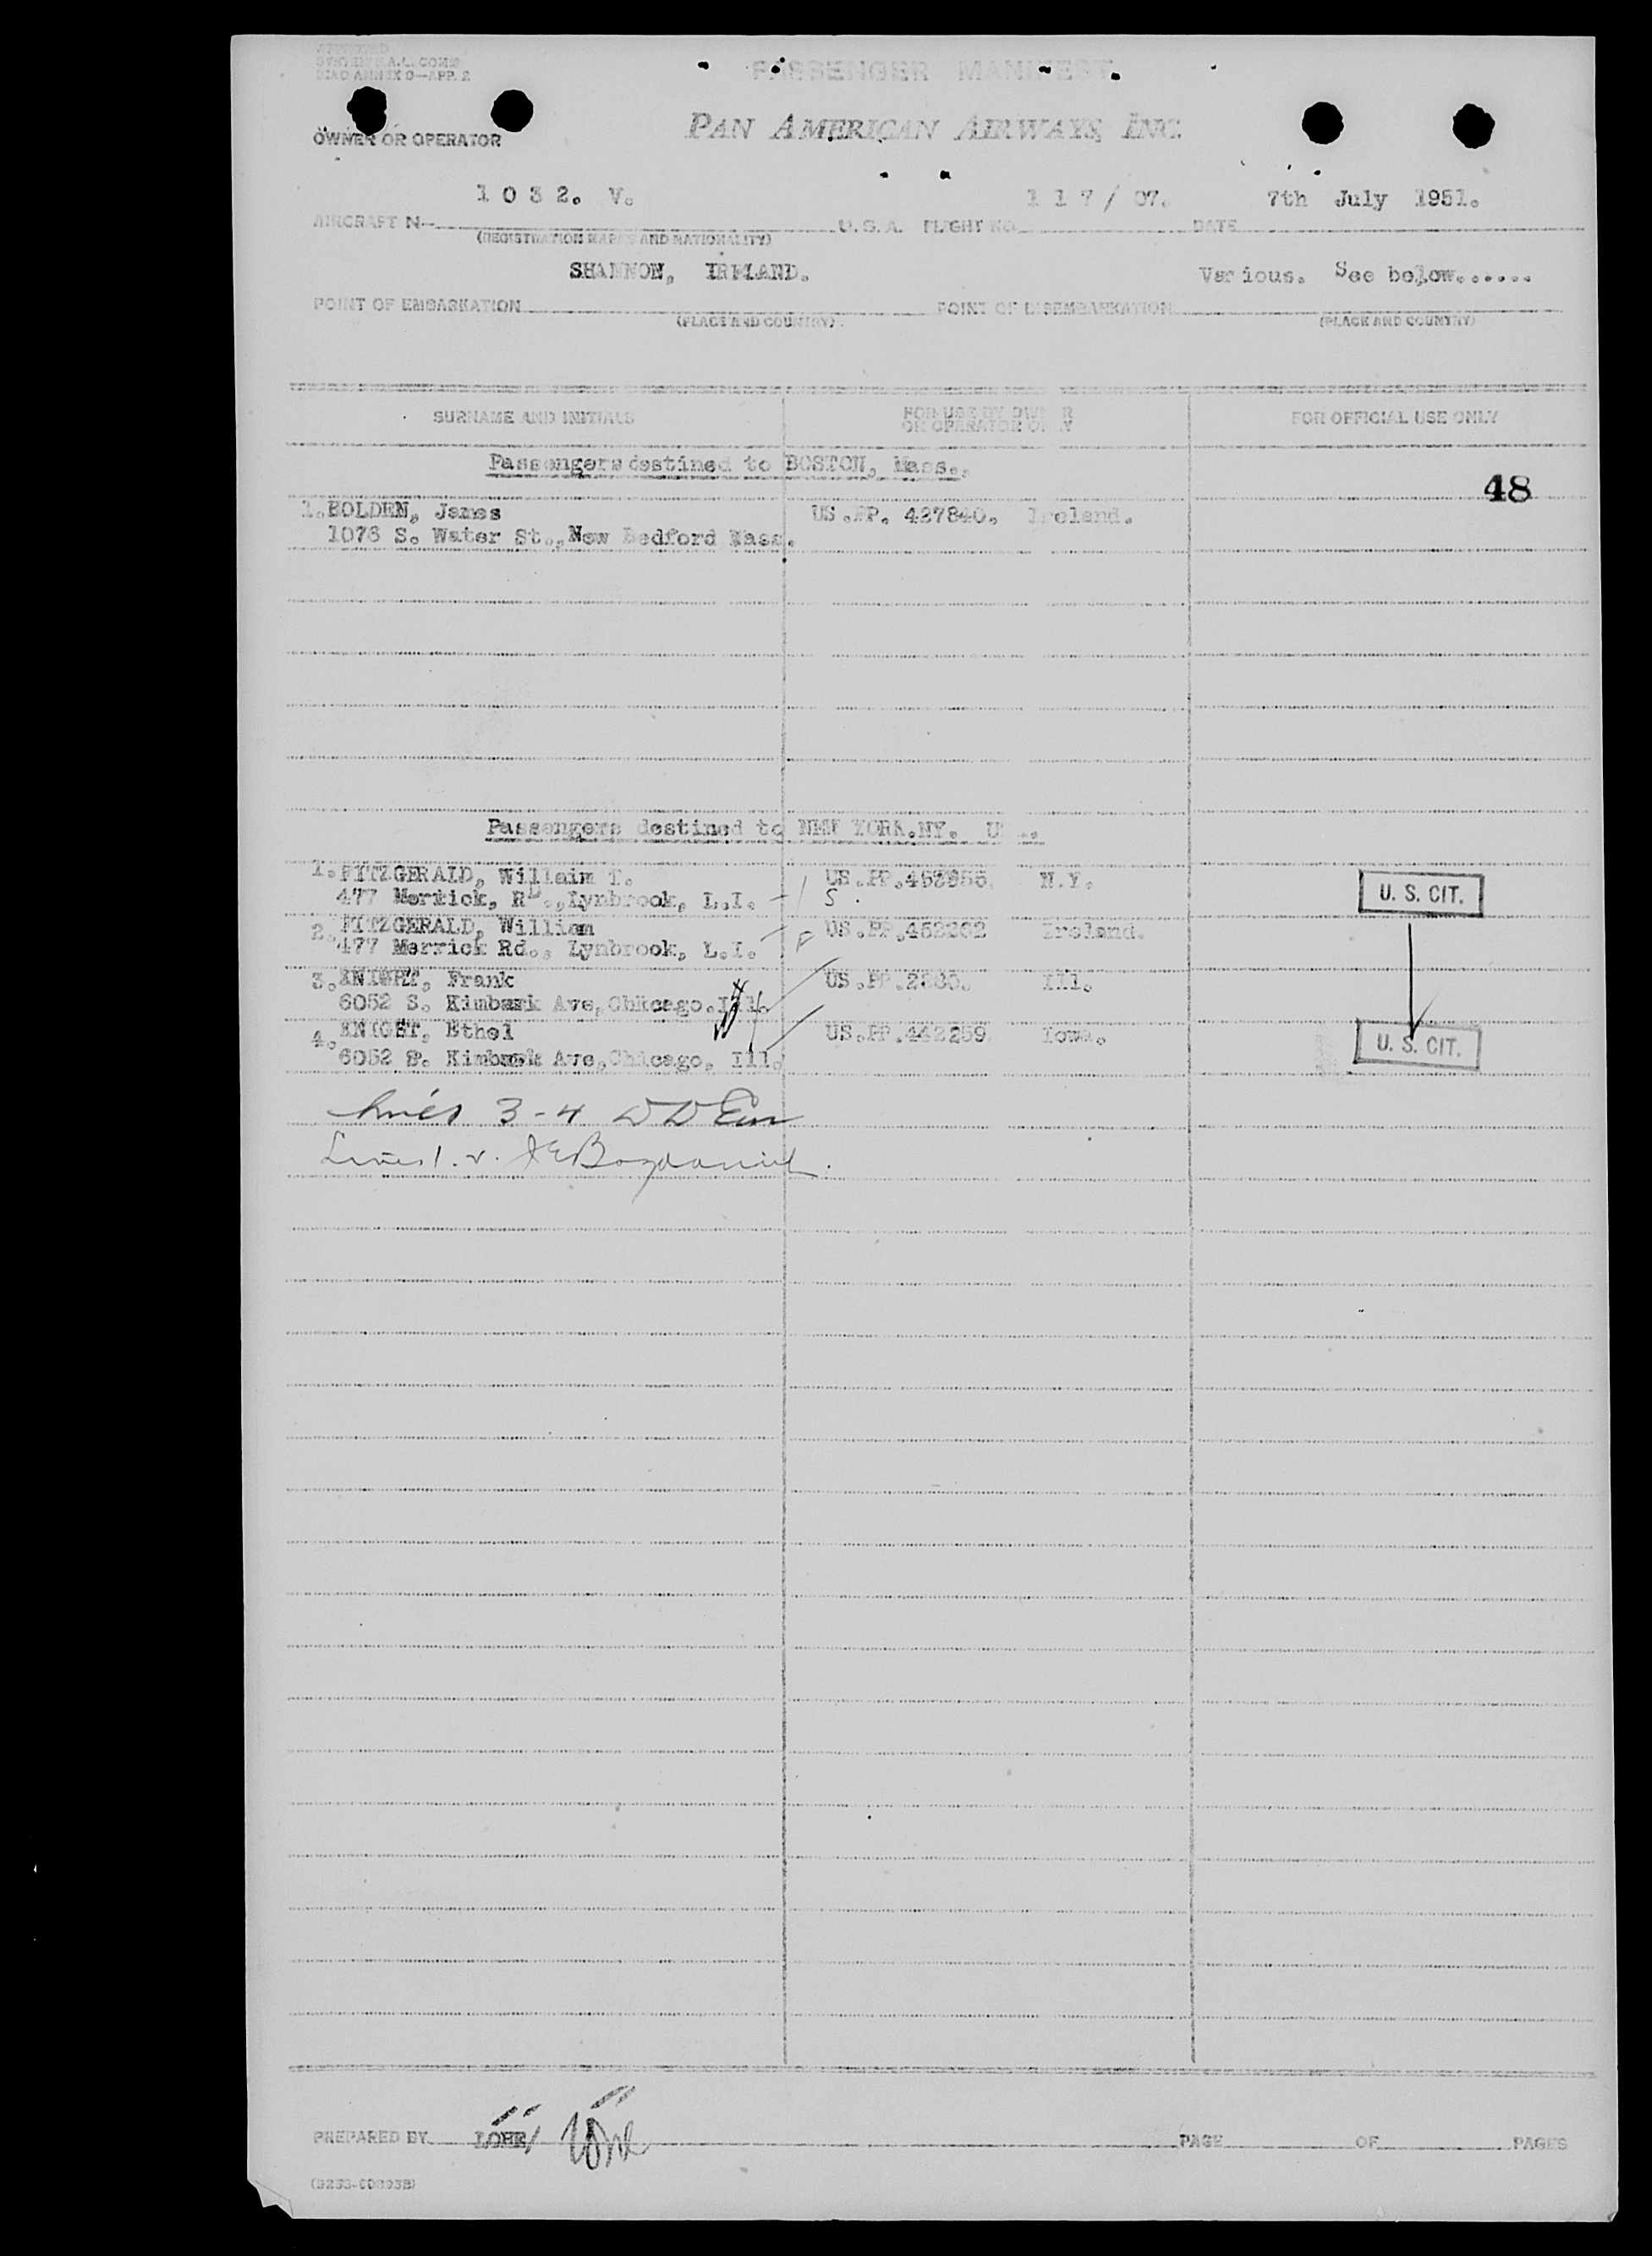 APPROVED
PASSENGER MANIFEST
OWNER OR OPERATOR
PAN AMERICAN AIRWAYS, INC.
1 0 3 2. V. 1 1 7 / 07. 7th July 1951.
AIRCRAFT N- U.S.A. FLIGHT NO. DATE
(REGISTRATION MARKS AND NATIONALITY)
SHANNON, IRELAND. Various. See below......
POINT OF EMBARKATION POINT OF DISEMBARKATION
(PLACE AND COUNTRY) (PLACE AND COUNTRY)
SURNAME AND INITIALS FOR USE BY OWNER OR OPERATOR ONLY FOR OFFICIAL USE ONLY
Passengers destined to BOSTON, Mass.,
48
1. BOLDEN, James US.PP. 427840. Ireland.
1076 S. Water St., New Bedford Mass.
Passengers destined to NEW YORK.NY.
1. FITZGERALD, Willaim T. US.PP. N.Y. U. S. CIT.
477 Merrick, Rd., Lynbrook, L.I. S.
2. FITZGERALD, William US.PP. Ireland.
477 Merrick Rd., Lynbrook, L.I.
3. KNIGHT, Frank US.PP. Ill.
6052 S. Kimbark Ave, Chicago. Ill.
4. KNIGHT, Ethel US.PP.442259 Iowa. U. S. CIT.
6052 S. Kimbark Ave, Chicago, Ill.
Lines 3-4
Lines 1.
PREPARED BY LOHR/ PAGE OF PAGES